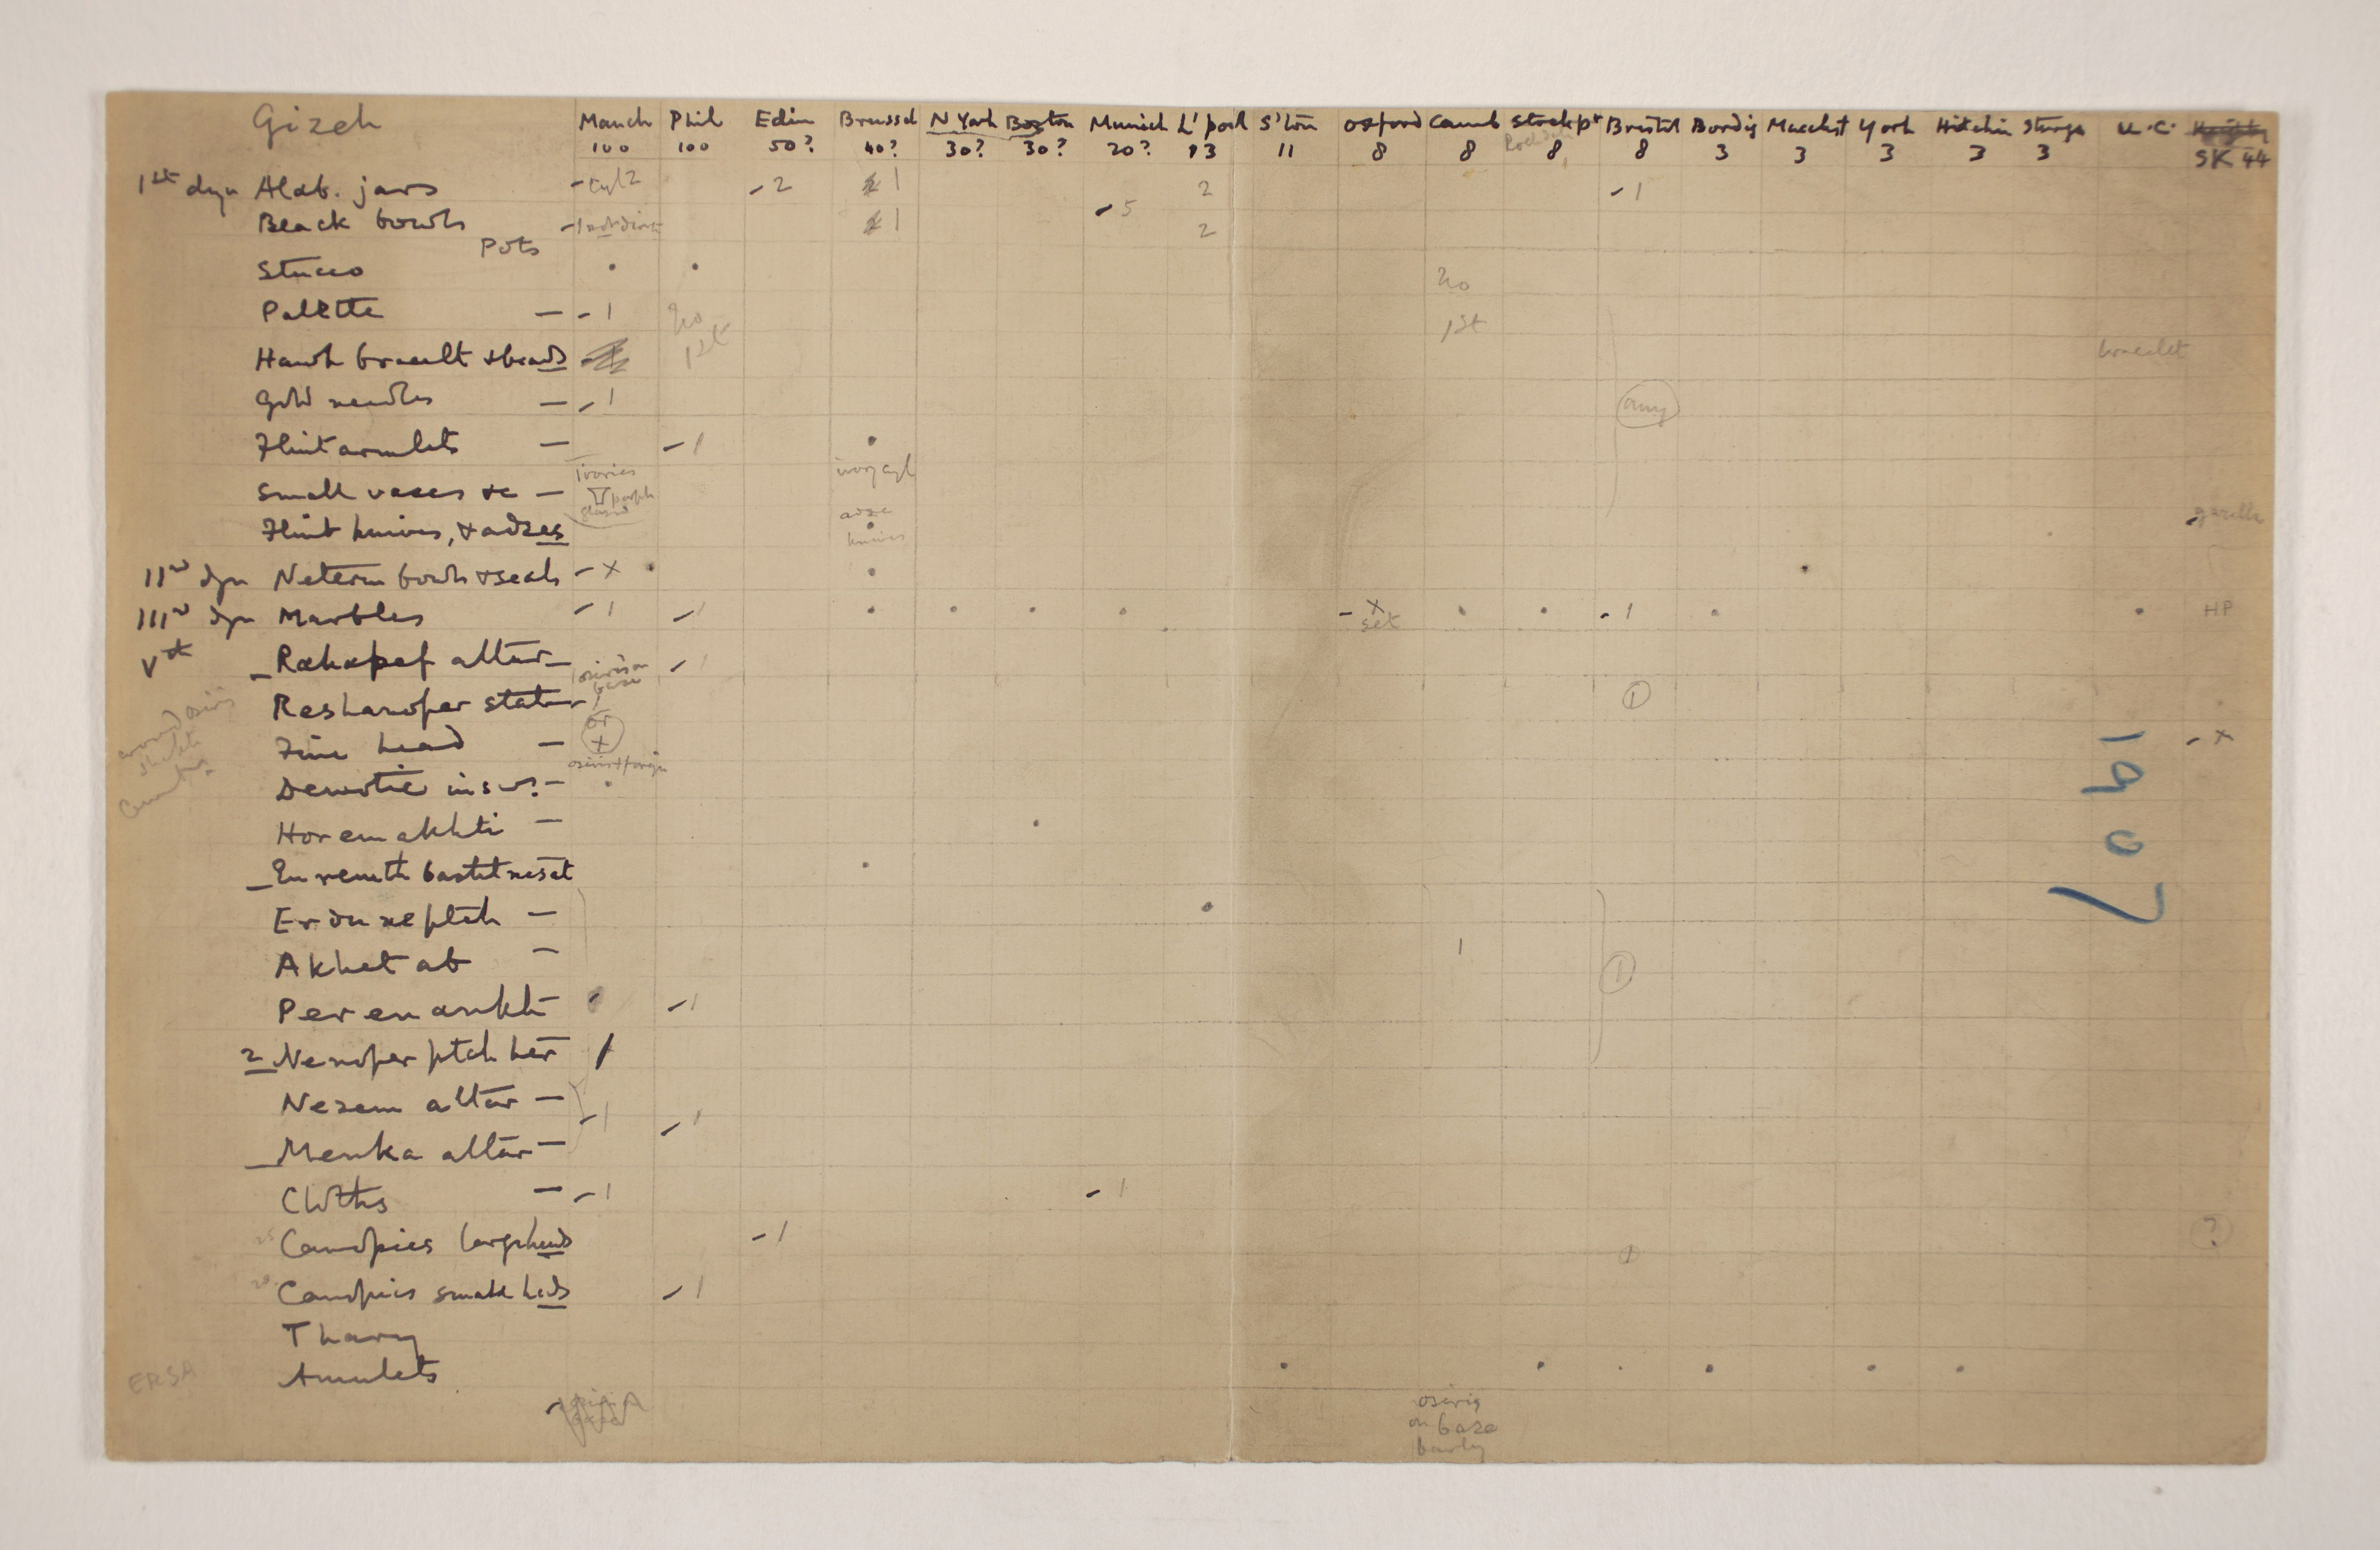 Gizeh Manch Phil Edin Brussel N York Boston Munich L'pool S'ton Oxford Camb Stockpt Bristol Bordig Macclest York Hitchin Sturge U.C.
100 100 50? 40? 30? 30? 20? 13 11 8 8 8 8 3 3 3 3 3 SK 44
1st dyn Alab. jars - cyl 2 - 2 1 2 - 1
Black bowls 1 - 5 2
Pots
Stucco • • no
Palette — - 1 no 1st
Hawk bracelt + beads 1st bracelet
Gold needles — - 1 any
Flint armlets — - 1 •
Small vases &c — Ivories porph glazed ivory cyl
Flint knives, + adzes adze • knives gazelle
IInd dyn Neteren bowls + seals - x • • •
IIIrd dyn Marbles - 1 - 1 • • • • - x set • • - 1 • • HP
Vth Rahapef altar — - 1
osiris on base
Reshanofer stat — 1
or
Fine head — x - x
osiris + foreign
Demotic inscr? — •
Horemakhti — •
En renuth bastet neset •
Erdu ne ptah — •
Akhet ab — 1 1
Per en ankh — - 1
2 Nenofer ptah her /
Nesem altar — - 1 - 1
Menka altar —
Cloths — - 1 - 1
25 Canopics large heads - 1 1 ?
20 Canopics small heds - 1
Thary
Amulets • • • • • •
ERSA
osiris
on base
1907